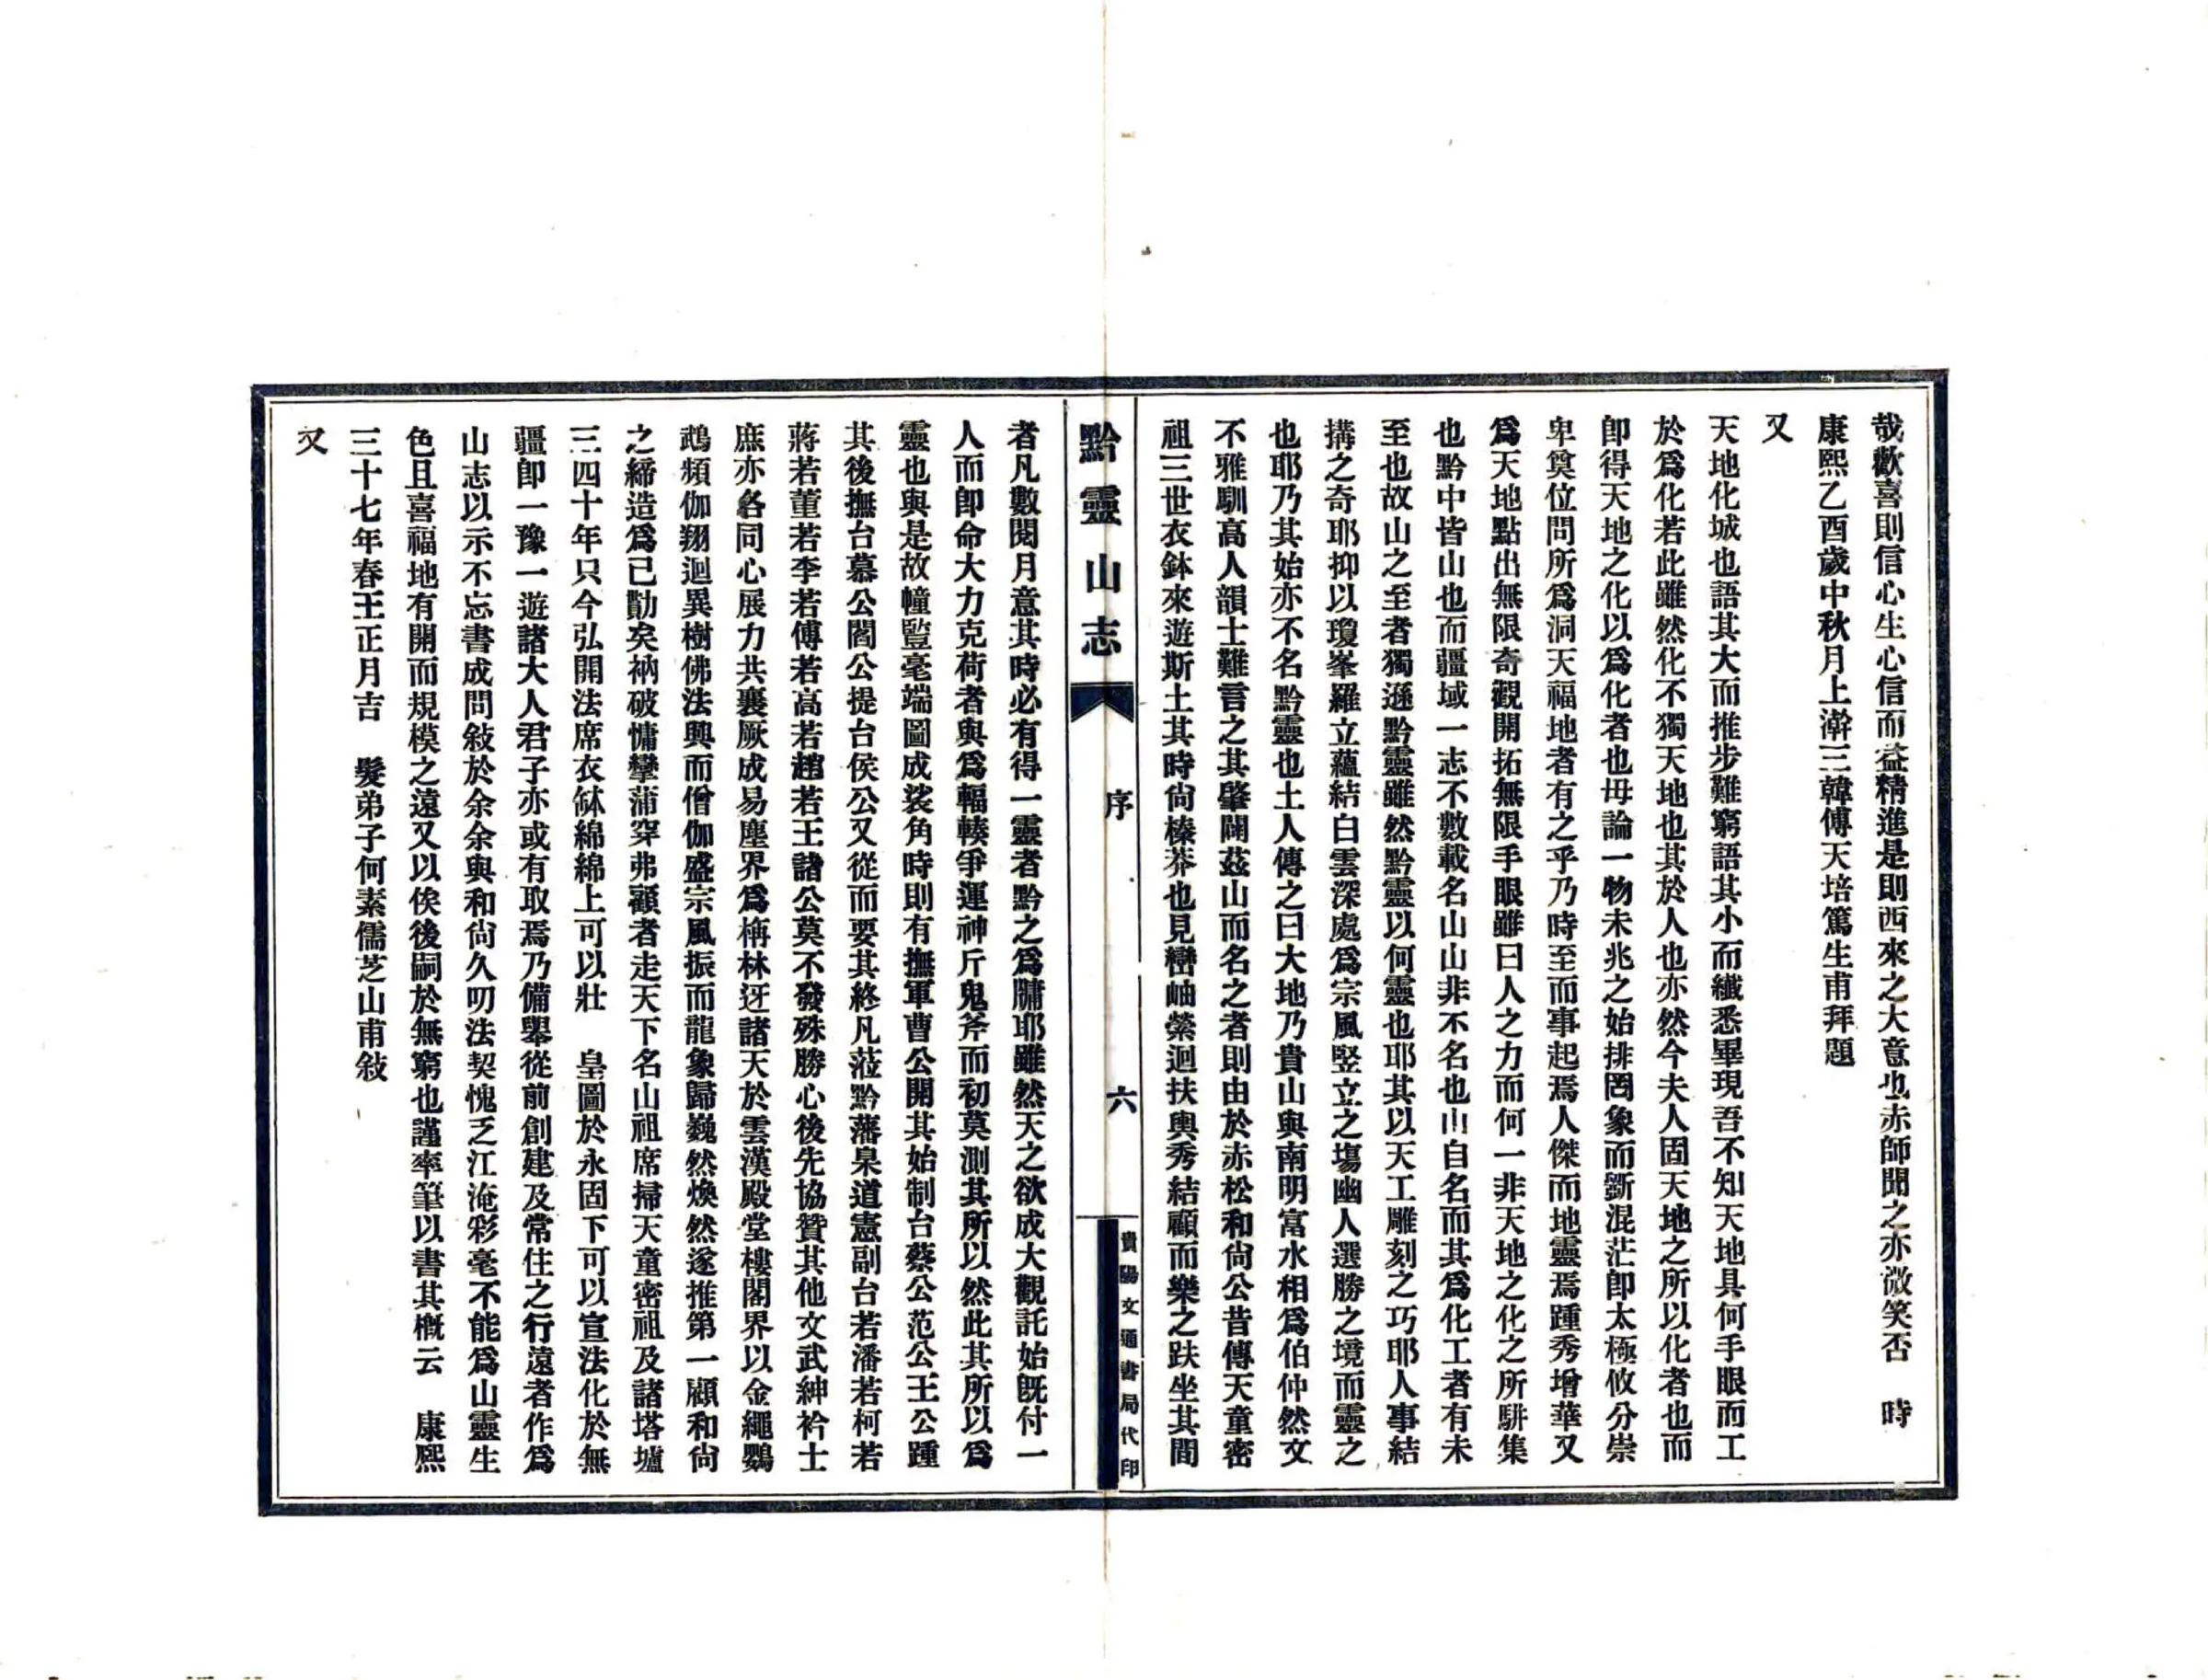 哉歡喜則信心生心信而益精進是則西來之大意也赤師聞之亦微笑否　時
康熙乙酉歲中秋月上澣三韓傅天培篤生甫拜題
又
天地化城也語其大而推步難窮語其小而纖悉畢現吾不知天地具何手眼而工
於爲化若此雖然化不獨天地也其於人也亦然今夫人固天地之所以化者也而
卽得天地之化以爲化者也毋論一物未兆之始排罔象而斵混茫卽太極攸分崇
卑奠位問所爲洞天福地者有之乎乃時至而事起焉人傑而地靈焉踵秀增華又
爲天地點出無限奇觀開拓無限手眼雖曰人之力而何一非天地之化之所駢集
也黔中皆山也而疆域一志不數載名山山非不名也山自名而其爲化工者有未
至也故山之至者獨遜黔靈雖然黔靈以何靈也耶其以天工雕刻之巧耶人事結
搆之奇耶抑以瓊峯羅立蘊結白雲深處爲宗風竪立之塲幽人選勝之境而靈之
也耶乃其始亦不名黔靈也土人傳之曰大地乃貴山與南明富水相爲伯仲然文
不雅馴高人韻士難言之其肇闢茲山而名之者則由於赤松和尙公昔傳天童密
祖三世衣鉢來遊斯土其時尙榛莽也見巒岫縈迴扶輿秀結顧而樂之趺坐其間
黔靈山志
序
六
貴陽文通書局代印
者凡數閱月意其時必有得一靈者黔之爲牖耶雖然天之欲成大觀託始旣付一
人而卽命大力克荷者與爲輻輳爭運神斤鬼斧而初莫測其所以然此其所以爲
靈也與是故幢豎毫端圖成裟角時則有撫軍曹公開其始制台蔡公范公王公踵
其後撫台慕公閻公提台侯公又從而要其終凡蒞黔藩臬道憲副台若潘若柯若
蔣若董若李若傅若高若趙若王諸公莫不發殊勝心後先協贊其他文武紳衿士
庶亦各同心展力共襄厥成易塵界爲栴林迓諸天於雲漢殿堂樓閣界以金繩鸚
鵡頻伽翔迴異樹佛法興而僧伽盛宗風振而龍象歸巍然煥然遂推第一顧和尙
之締造爲已勩矣衲破慵攣蒲穿弗顧者走天下名山祖席掃天童密祖及諸塔壚
三四十年只今弘開法席衣鉢綿綿上可以壯　皇圖於永固下可以宣法化於無
疆卽一豫一遊諸大人君子亦或有取焉乃備舉從前創建及常住之行遠者作爲
山志以示不忘書成問敍於余余與和尙久叨法契愧乏江淹彩毫不能爲山靈生
色且喜福地有開而規模之遠又以俟後嗣於無窮也謹率筆以書其槪云　康熙
三十七年春王正月吉　髮弟子何素儒芝山甫敍
又